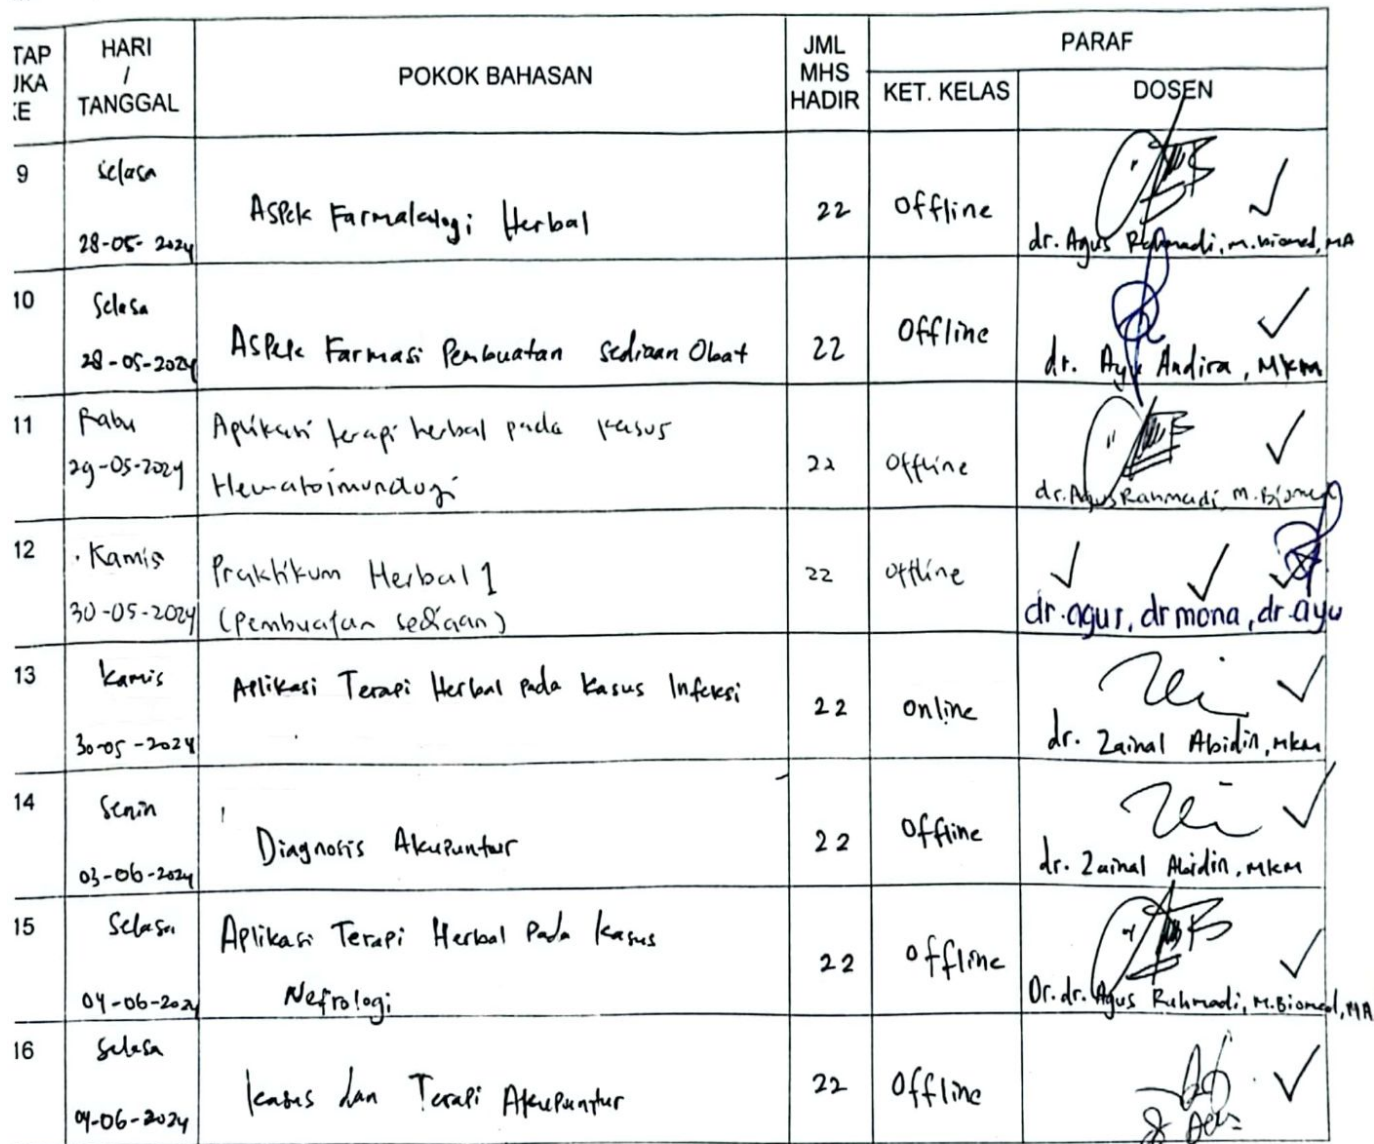 TAP HARI POKOK BAHASAN JML PARAF
UKA / MHS
KE TANGGAL HADIR KET. KELAS DOSEN
9 Selasa
28-05-2024 Aspek Farmakologi Herbal 22 Offline
dr. Agus Rahmadi, M.Biomed, MA
10 Selasa
28-05-2024 Aspek Farmasi Pembuatan sediaan Obat 22 Offline
dr. Ayu Andira, MKM
11 Rabu Aplikasi terapi herbal pada kasus
29-05-2024 Hematoimunologi 22 Offline
dr. Agus Rahmadi, M.Biomed
12 Kamis Praktikum Herbal 1 22 Offline
30-05-2024 (Pembuatan sediaan) dr.agus, dr mona, dr.ayu
13 Kamis Aplikasi Terapi Herbal pada Kasus Infeksi
30-05-2024 22 Online
dr. Zainal Abidin, MKM
14 Senin
03-06-2024 Diagnosis Akupuntur 22 Offline
dr. Zainal Abidin, MKM
15 Selasa Aplikasi Terapi Herbal Pada Kasus
04-06-2024 Nefrologi 22 Offline
Dr. dr. Agus Rahmadi, M.Biomed, MA
16 Selasa
04-06-2024 Kasus dan Terapi Akupuntur 22 Offline